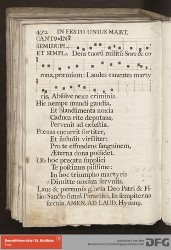 492 IN FESTO UNIUS MART.
CANTUS IN
SEMIDUPL.
ET SIMPL. Deus tuorū militū Sors & co
rona, præmium: Laudes canentes marty
ris, Absolve nexu criminis.
Hic nempe mundi gaudia,
Et blandimenta noxia
Caduca rite deputans,
Pervenit ad cœlestia.
Pœnas cucurrit fortiter,
Et sustulit viriliter:
Pro te effundens sanguinem,
Æterna dona possidet.
Ob hoc precatu supplici
Te poscimus piissime:
In hoc triumpho martyris
Dimitte noxam servulis.
Laus & perennis gloria Deo Patri & Fi
lio: Sancto simul Paraclito, In sempiterna
secula. AMEN. AD LAUD. Hymng.
DFG